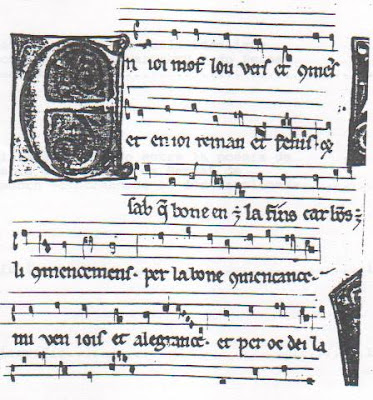 En ioi mof lou vers et ꝯmēs
et en ioi reman et fenis.
sab q̄ bone en ⁊ la fins car bōs ⁊
li ꝯmencemens. per la bone ꝯmencance
mi ven iois et alegrance. et per oc dei la